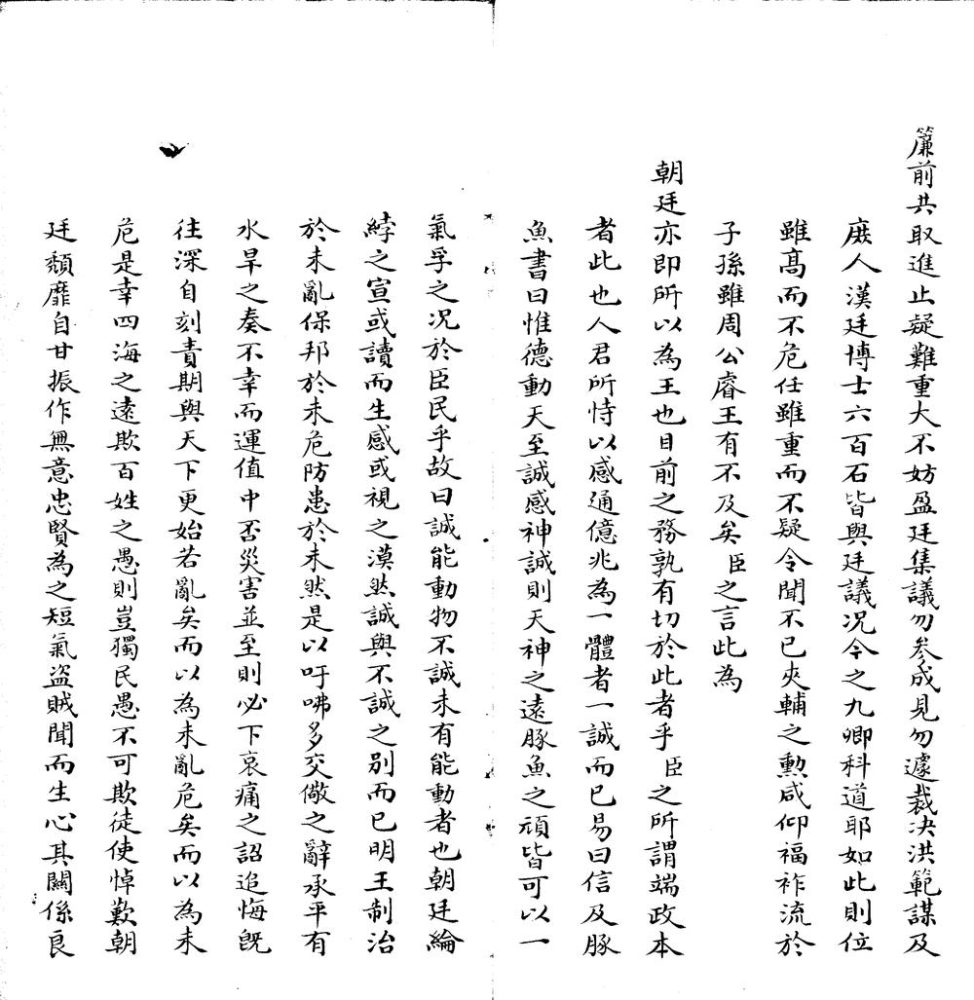 簾前共取進止疑難重大不妨盈廷集議勿參成見勿遽裁決洪範謀及
庶人漢廷博士六百石皆與廷議况今之九卿科道耶如此則位
雖高而不危任雖重而不疑令聞不已夾輔之勲咸仰福祚流於
子孫雖周公睿王有不及矣臣之言此為
朝廷亦即所以為王也目前之務孰有切於此者乎臣之所謂端政本
者此也人君所恃以感通億兆為一體者一誠而已易曰信及豚
魚書曰惟德動天至誠感神誠則天神之遠豚魚之頑皆可以一
氣孚之况於臣民乎故曰誠能動物不誠未有能動者也朝廷綸
綍之宣或讀而生感或視之漠然誠與不誠之別而已明王制治
於未亂保邦於未危防患於未然是以吁咈多交儆之辭承平有
水旱之奏不幸而運值中否災害並至則必下哀痛之詔追悔既
往深自刻責期與天下更始若亂矣而以為未亂危矣而以為未
危是幸四海之遠欺百姓之愚則豈獨民愚不可欺徒使悼歎朝
廷頹靡自甘振作無意忠賢為之短氣盜賊聞而生心其關係良